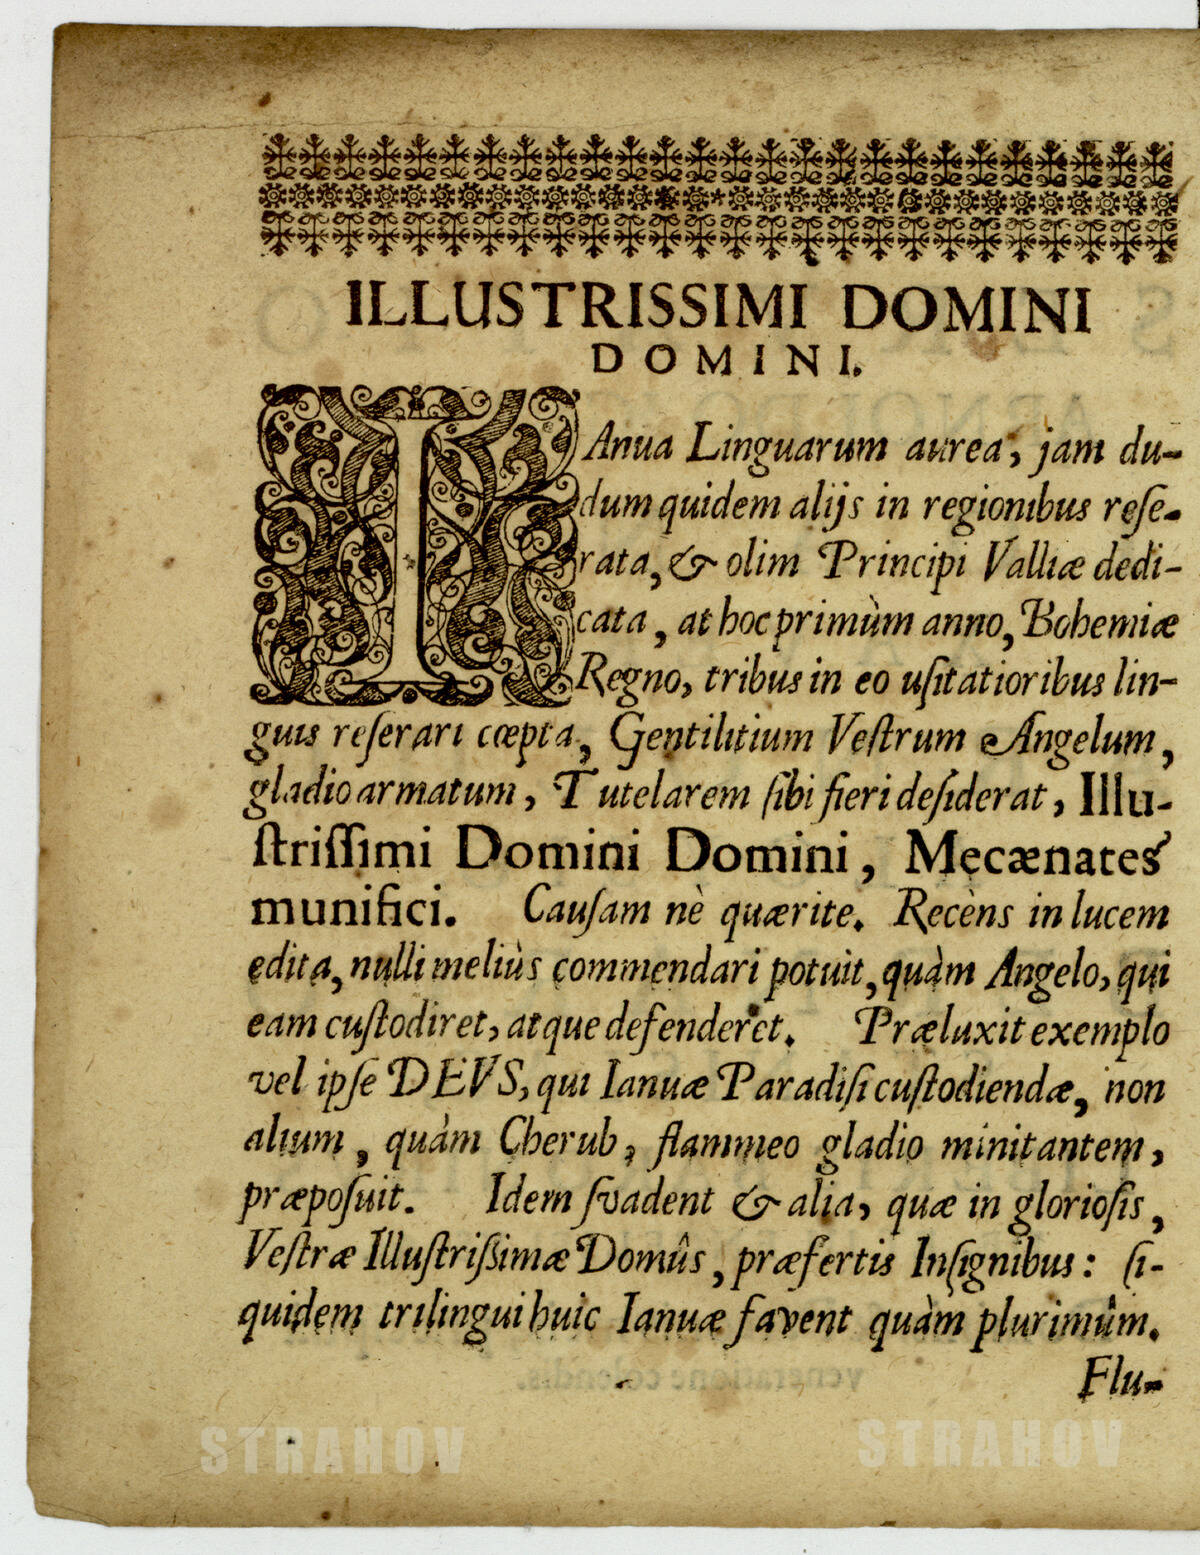 ILLUSTRISSIMI DOMINI
DOMINI.
IAnua Linguarum aurea, jam du-
dum quidem alijs in regionibus rese-
rata, & olim Principi Valliæ dedi-
cata, at hoc primùm anno, Bohemiæ
Regno, tribus in eo usitatioribus lin-
guis reserari cœpta, Gentilitium Vestrum Angelum,
gladio armatum, Tutelarem sibi fieri desiderat, Illu-
strissimi Domini Domini, Mecænates
munifici. Causam nè quærite. Recèns in lucem
edita, nulli meliùs commendari potuit, quàm Angelo, qui
eam custodiret, atque defenderet. Præluxit exemplo
vel ipse DEVS, qui Ianuæ Paradisi custodiendæ, non
alium, quàm Cherub, flammeo gladio minitantem,
præposuit. Idem svadent & alia, quæ in gloriosis,
Vestræ Illustrißimæ Domûs, præfertis Insignibus: si-
quidem trilingui huic Ianuæ favent quàm plurimûm.
Flu-
veneratione colendis.
STRAHOV STRAHOV